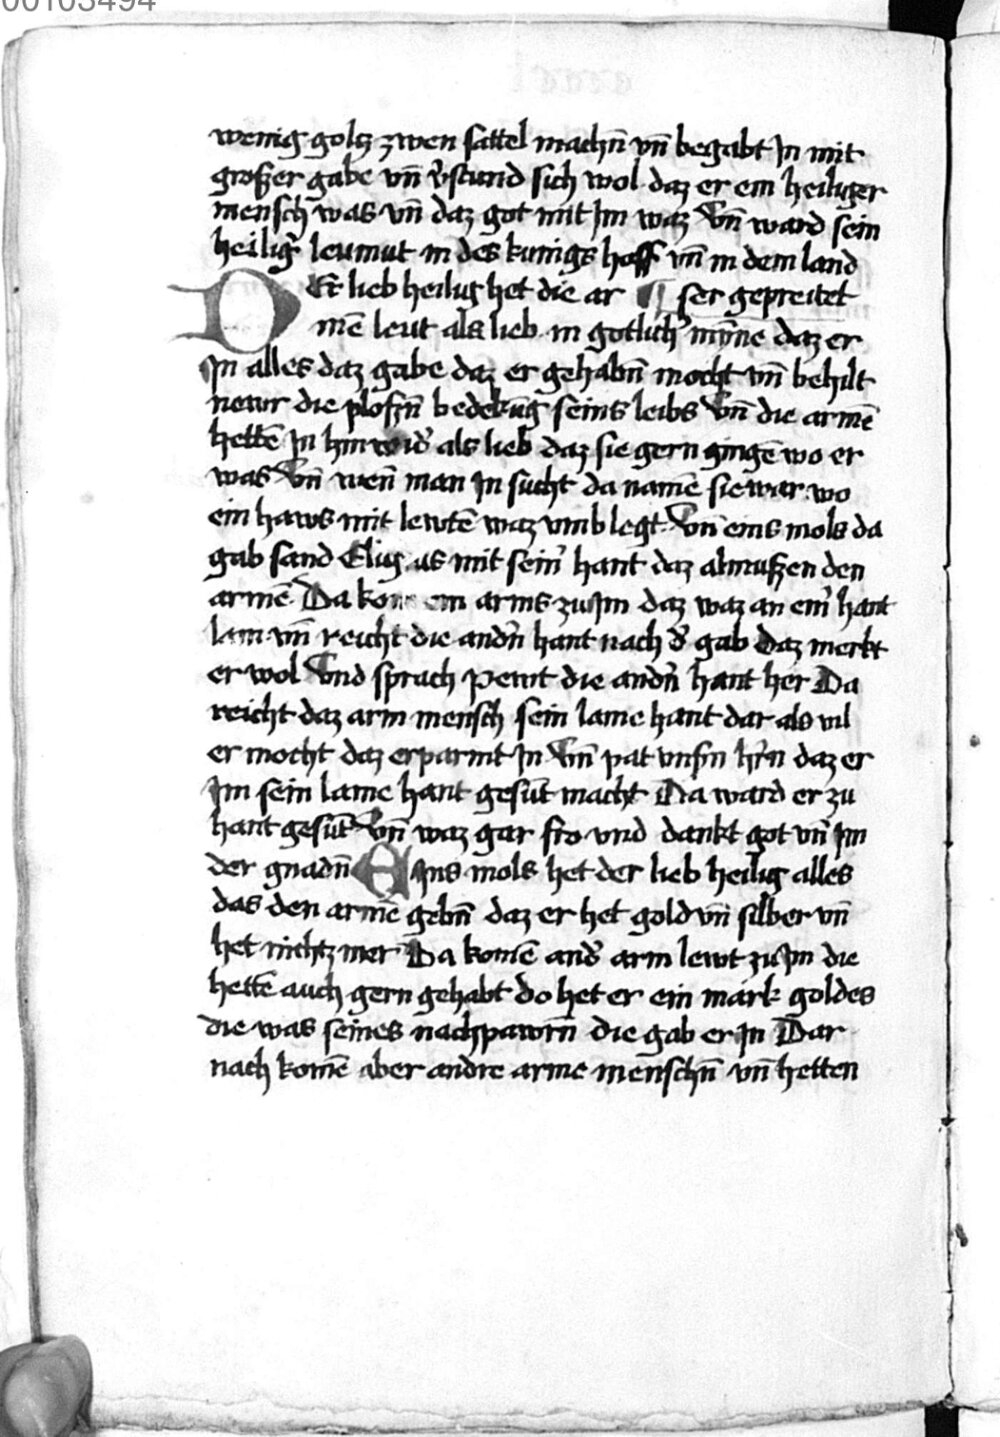 00103494
wenig goltz zwen sattel machn̄ vn̄ begabt Jn mit
groſzer gabe vn̄ v̓stund sich wol daz er ein heiliger
mensch was vn̄ daz got mit Jm waz Vn̄ ward sein
heilig̓ leumut in des kunigs hoff vn̄ in dem land
DEr lieb heilig het die ar ¶ ser gepreitet
mē leut als lieb in gotlich̓ mȳne daz er
Jn alles daz gabe daz er gehabn̄ mocht vn̄ behilt
newr die ploſzn̄ bedekūg seins leibs Vn̄ die armē
hettē Jn hin wid̓ als lieb daz sie gern gingē wo er
was Vn̄ wen̄ man Jn sucht da namē sie war wo
ein haws mit lewtē waz vmb legt Vn̄ eins mols da
gab sand Eligius mit sein̓ hant daz almuſzen den
armē Da kom ein arms zu Jm daz waz an ein̓ hant
lam vn̄ reicht die andn̓ hant nach d̓ gab Daz merkt
er wol Vnd sprach pewt die andn̓ hant her Da
reicht daz arm mensch sein lame hant dar als vil
er mocht daz erparmt Jn Vn̄ pat vnsn̓ hr̓n daz er
Jm sein lame hant gesūt macht Da ward er zu
hant gesūt Vn̄ waz gar fro vnd dankt got vn̄ Jm
der gnadn̄ EJns mols het der lieb heilig alles
das den armē gebn̄ daz er het gold vn̄ silber vn̄
het nichtz mer Da komē and̓ arm lewt zu Jm die
hettē auch gern gehabt do het er ein mark goldes
die was seines nachpawrn̄ die gab er Jn Dar
nach komē aber andre arme menschn̄ vn̄ hetten